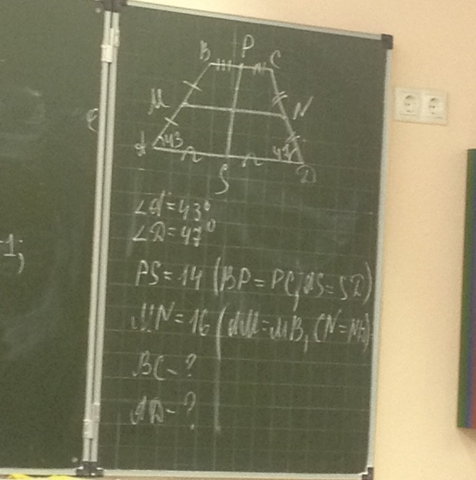 B P C
M N
A 43 47 D
S
∠A=43°
∠D=47°
PS=14 (BP=PC, AS=SD)
MN=16 (AM=MB, CN=ND)
BC-?
AD-?
1,